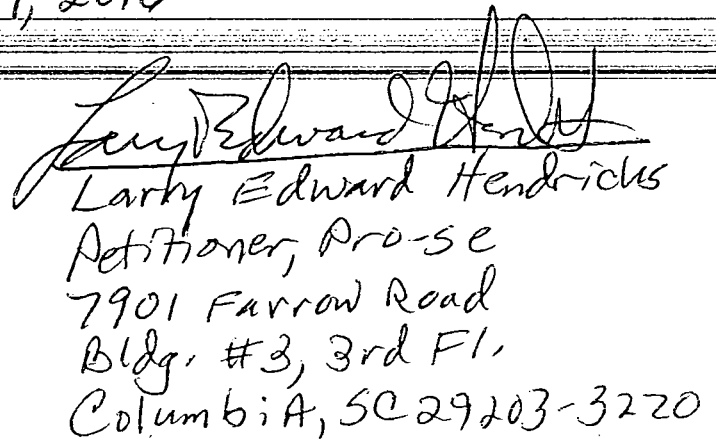 2016
Larry Edward Hendricks
Larry Edward Hendricks
Petitioner, Pro-se
7901 Farrow Road
Bldg. #3, 3rd Fl.
ColumbiA, SC 29203-3220